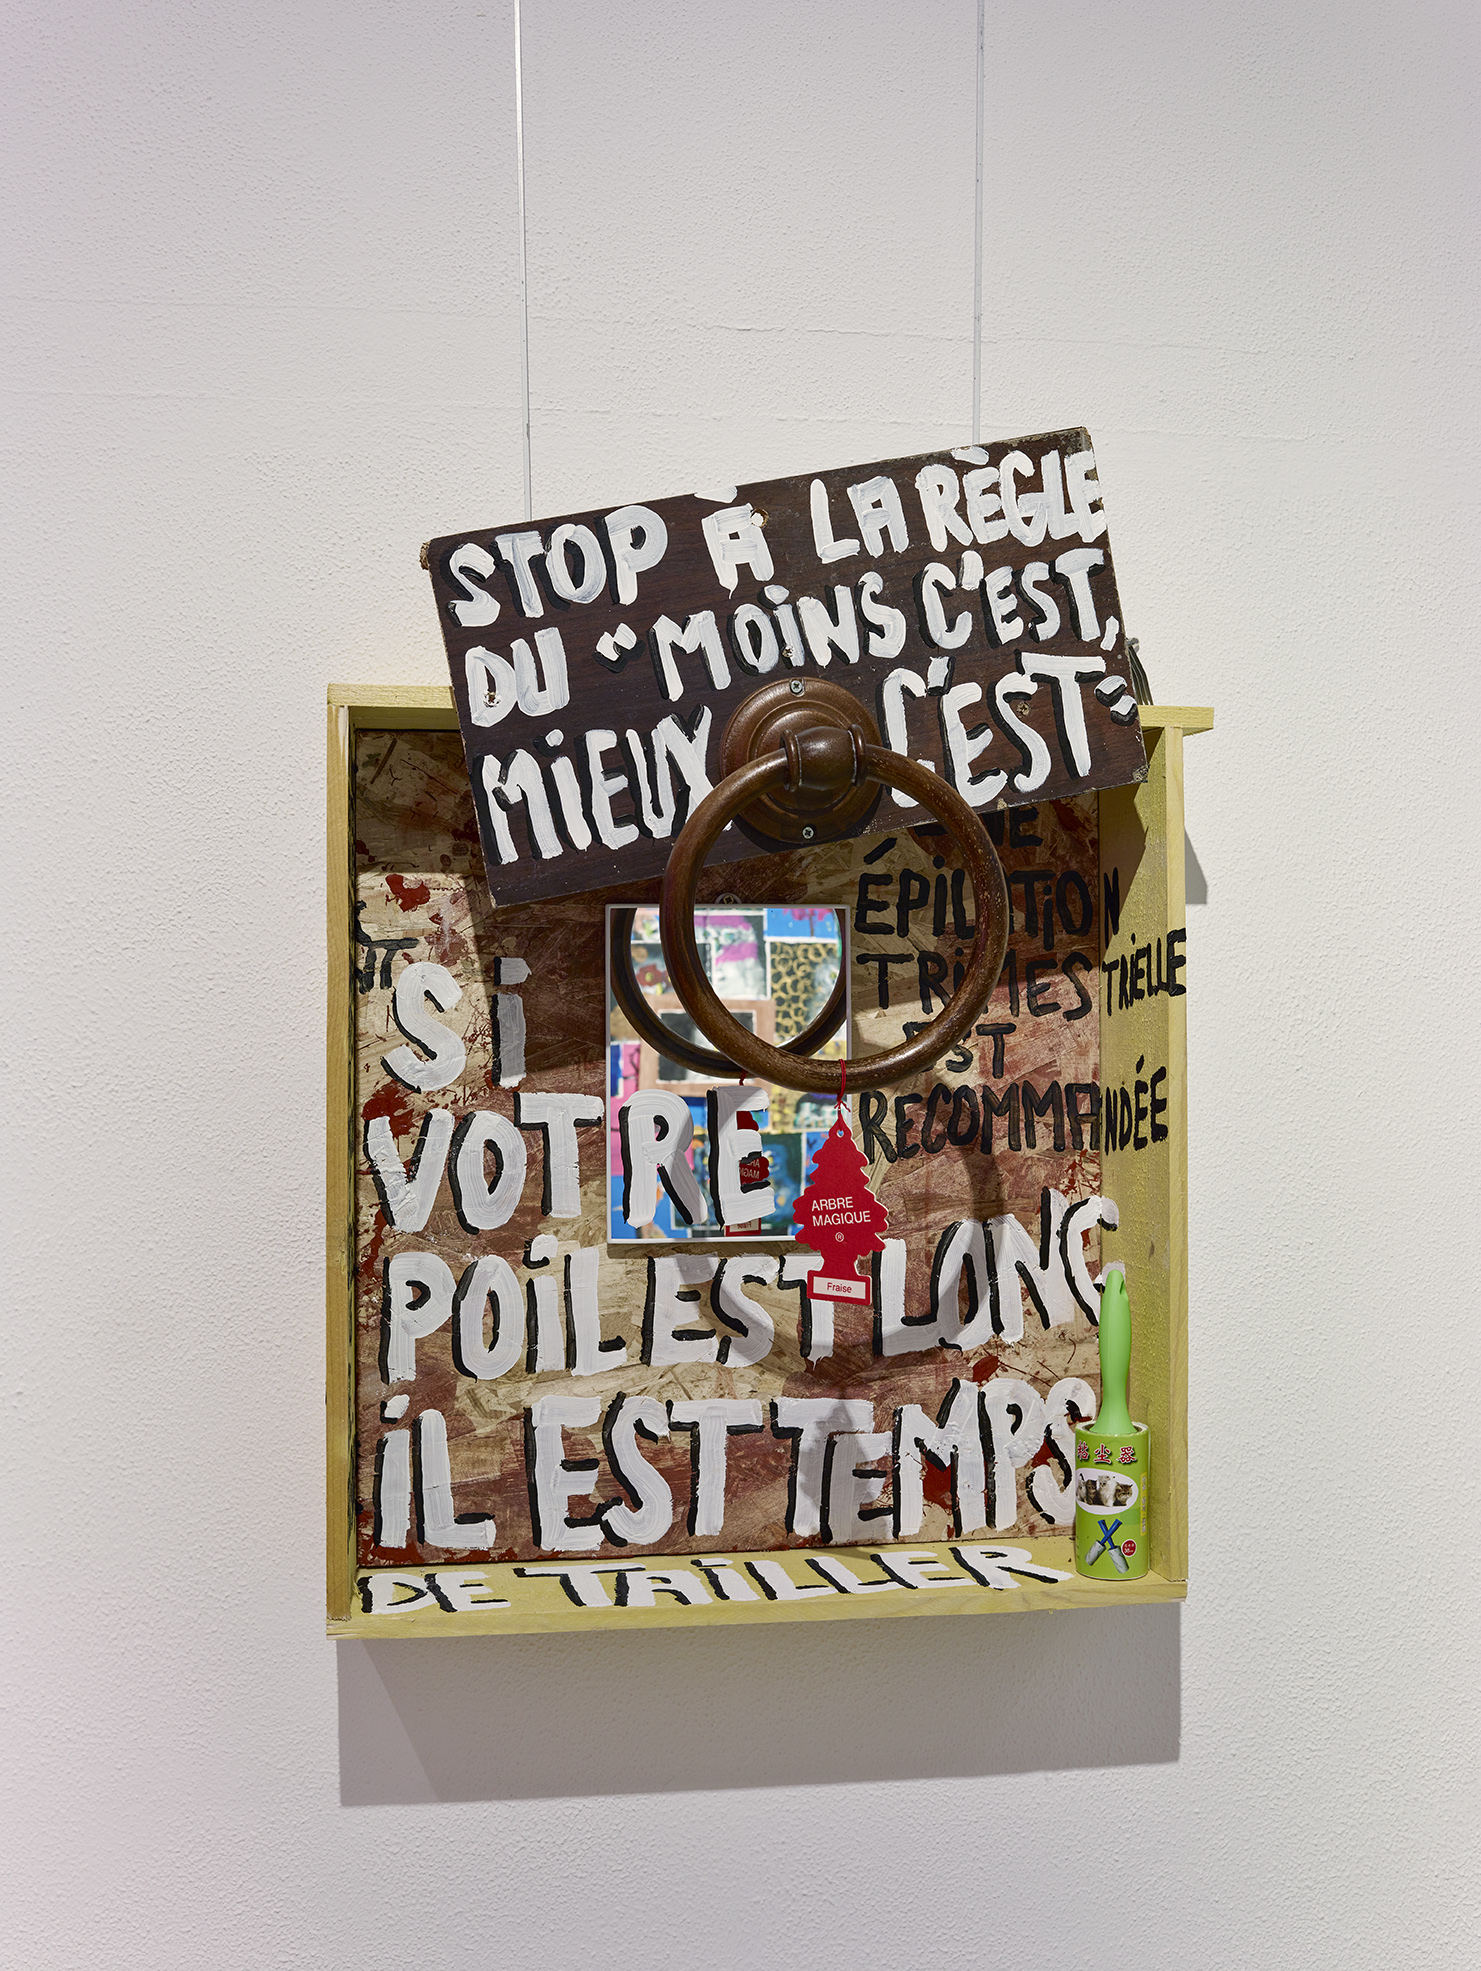 STOP À LA RÈGLE
DU "MOINS C'EST,
MIEUX C'EST"
ÉPILATION
TRIMESTRIELLE
EST
RECOMMANDÉE
SI
VOTRE
POIL EST LONG
IL EST TEMPS
DE TAILLER
ARBRE
MAGIQUE
®
Fraise
粘尘器